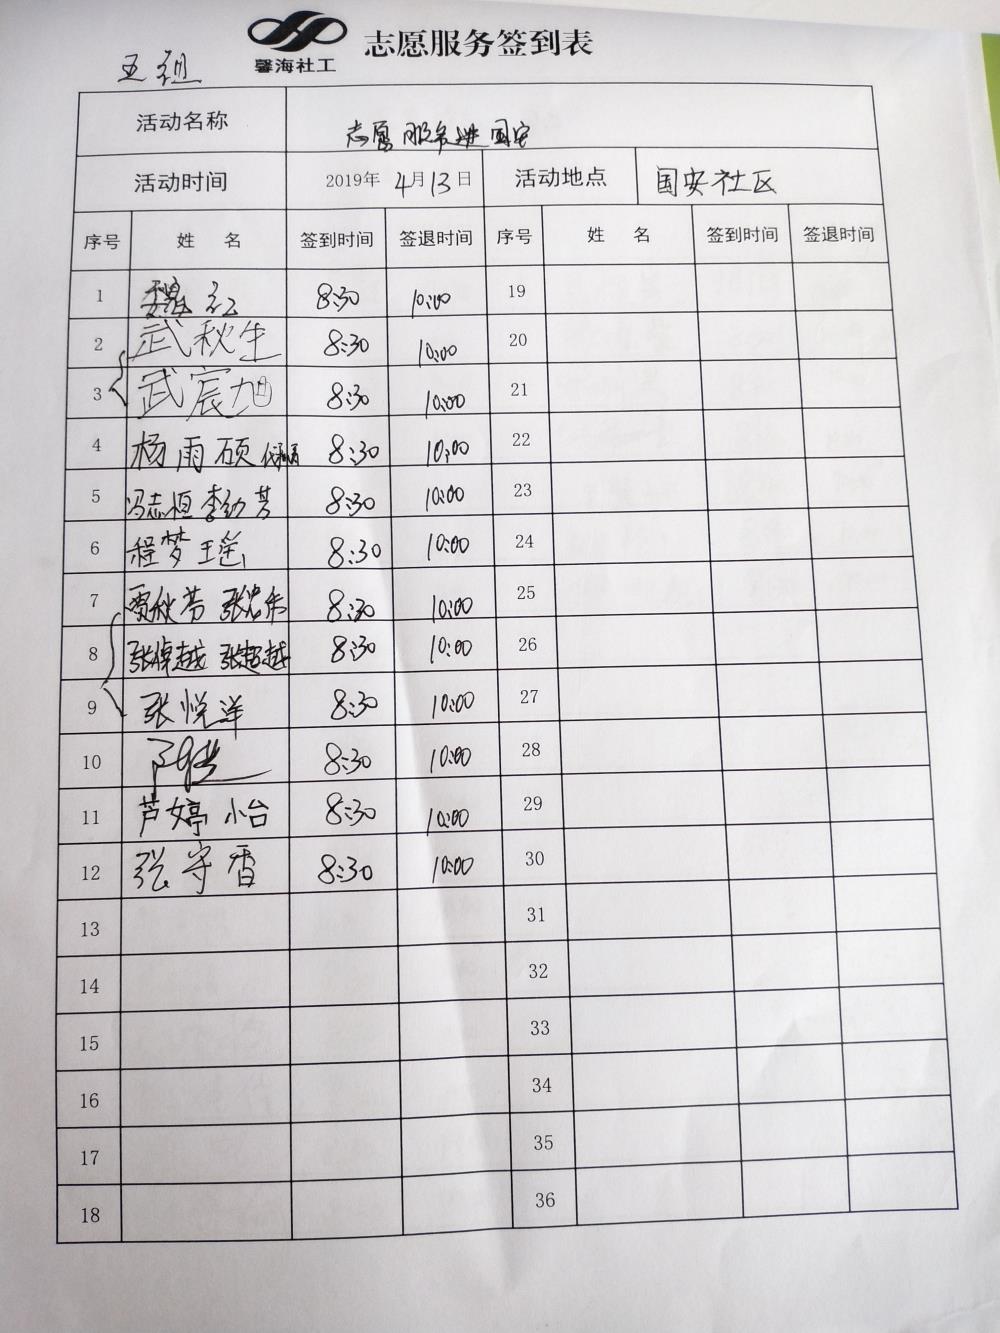 馨海社工
志愿服务签到表
王组
活动名称 志愿服务进国安
活动时间 2019年 4月13日 活动地点 国安社区
序号 姓 名 签到时间 签退时间 序号 姓 名 签到时间 签退时间
1 魏红 8:30 10:00 19
2 武秋生 8:30 10:00 20
3 武宸旭 8:30 10:00 21
4 杨雨硕 8:30 10:00 22
5 冯志恒 李幼芳 8:30 10:00 23
6 程梦瑶 8:30 10:00 24
7 贾秋芳 8:30 10:00 25
8 张倬越 张超越 8:30 10:00 26
9 张悦洋 8:30 10:00 27
10 8:30 10:00 28
11 芦婷 小台 8:30 10:00 29
12 张守香 8:30 10:00 30
13 31
14 32
15 33
16 34
17 35
18 36